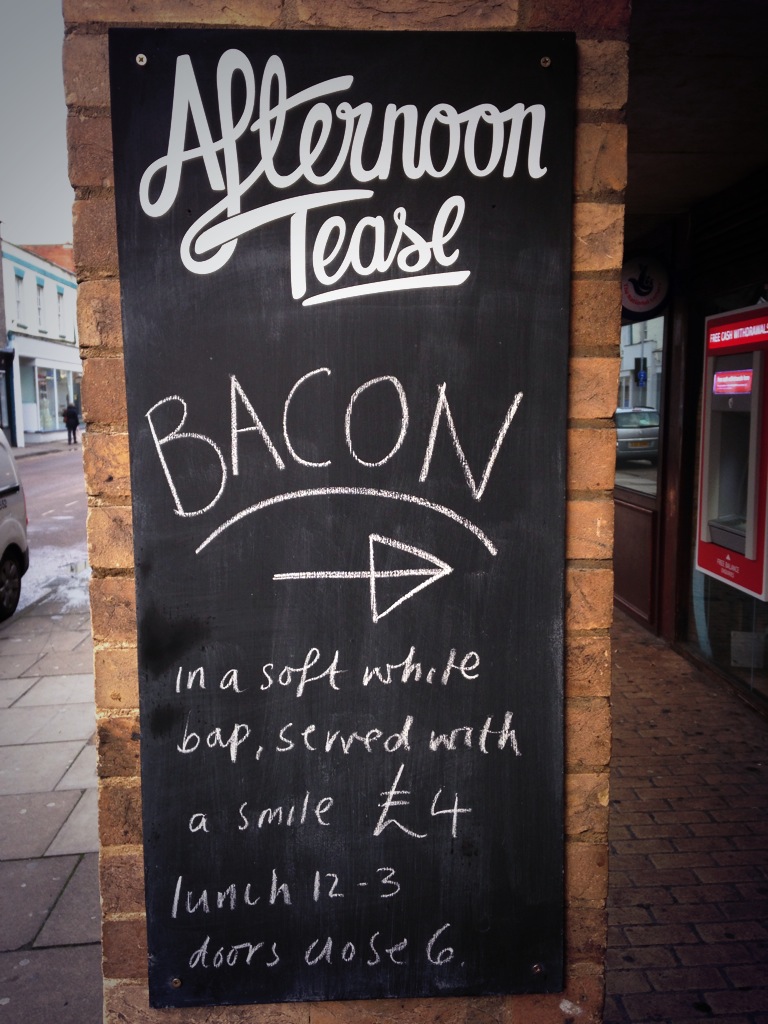 Afternoon
Tease
BACON
in a soft white
bap, served with
a smile £4
lunch 12-3
doors close 6.
FREE CASH WITHDRAWALS
FREE BALANCE